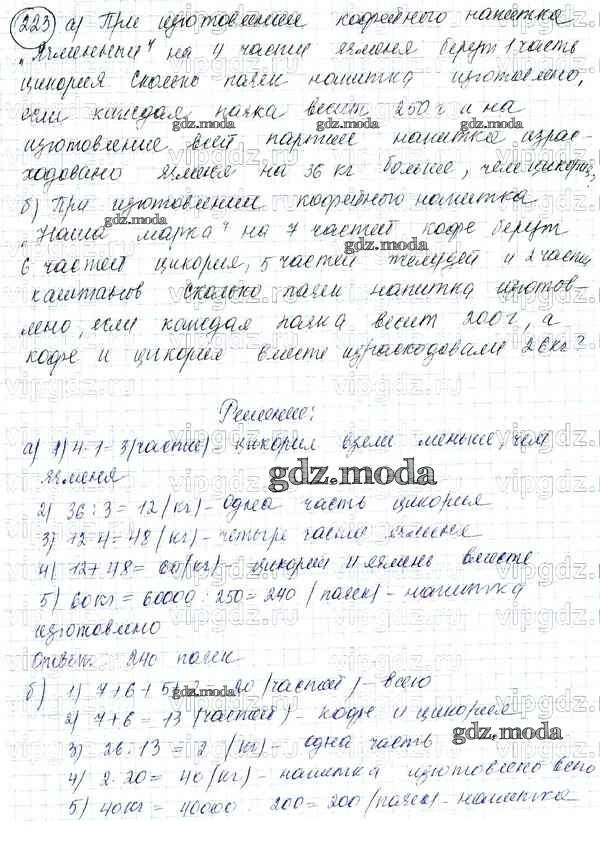 223 а) При изготовлении кофейного напитка
„Ячменный" на 4 части ячменя берут 1 часть
цикория Сколько пачек напитка изготовлено,
если каждая пачка весит 250 г и на
gdz.moda
изготовление всей партии напитка израс-
ходовано ячменя на 36 кг больше, чем цикория?
б) При изготовлении кофейного напитка
„Наша марка" на 7 частей кофе берут
gdz.moda
6 частей цикория, 5 частей желудей и 2 части
каштанов Сколько пачек напитка изготов-
лено, если каждая пачка весит 200 г, а
кофе и цикория вместе израсходовали 26 кг?
Решение:
а) 1) 4-1=3 (части) - цикория взяли меньше, чем
ячменя
gdz.moda
2) 36:3=12 (кг) - одна часть цикория
3) 12·4=48 (кг) - четыре части ячменя
4) 12+48=60 (кг) - цикорий и ячмень вместе
5) 60 кг = 60000 : 250 = 240 (пачек) - напитка
изготовлено
Ответ: 240 пачек
б) 1) 7+6+5+2=20 (частей) - всего
2) 7+6=13 (частей) - кофе и цикория
3) 26:13=2 (кг) - одна часть
4) 2·20=40 (кг) - напитка изготовлено всего
5) 40 кг = 40000 : 200 = 200 (пачек) - напитка
gdz.moda
vipgdz.ru